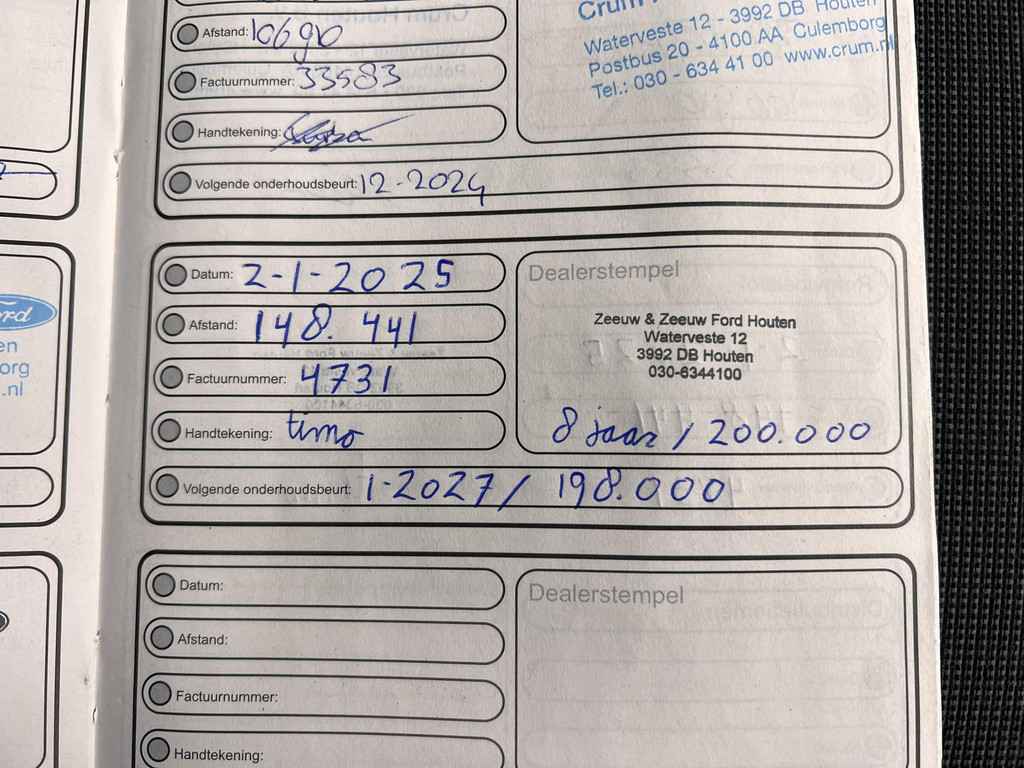 Afstand: 106g10
Factuurnummer: 33583
Handtekening:
Volgende onderhoudsbeurt: 12-2024
Crum
Waterveste 12 - 3992 DB Houten
Postbus 20 - 4100 AA Culemborg
Tel.: 030 - 634 41 00 www.crum.nl
Ford
en
org
.nl
Datum: 2-1-2025
Afstand: 148.441
Factuurnummer: 4731
Handtekening: timo
Volgende onderhoudsbeurt: 1-2027/ 198.000
Dealerstempel
Zeeuw & Zeeuw Ford Houten
Waterveste 12
3992 DB Houten
030-6344100
8 jaar / 200.000
Datum:
Afstand:
Factuurnummer:
Handtekening:
Dealerstempel